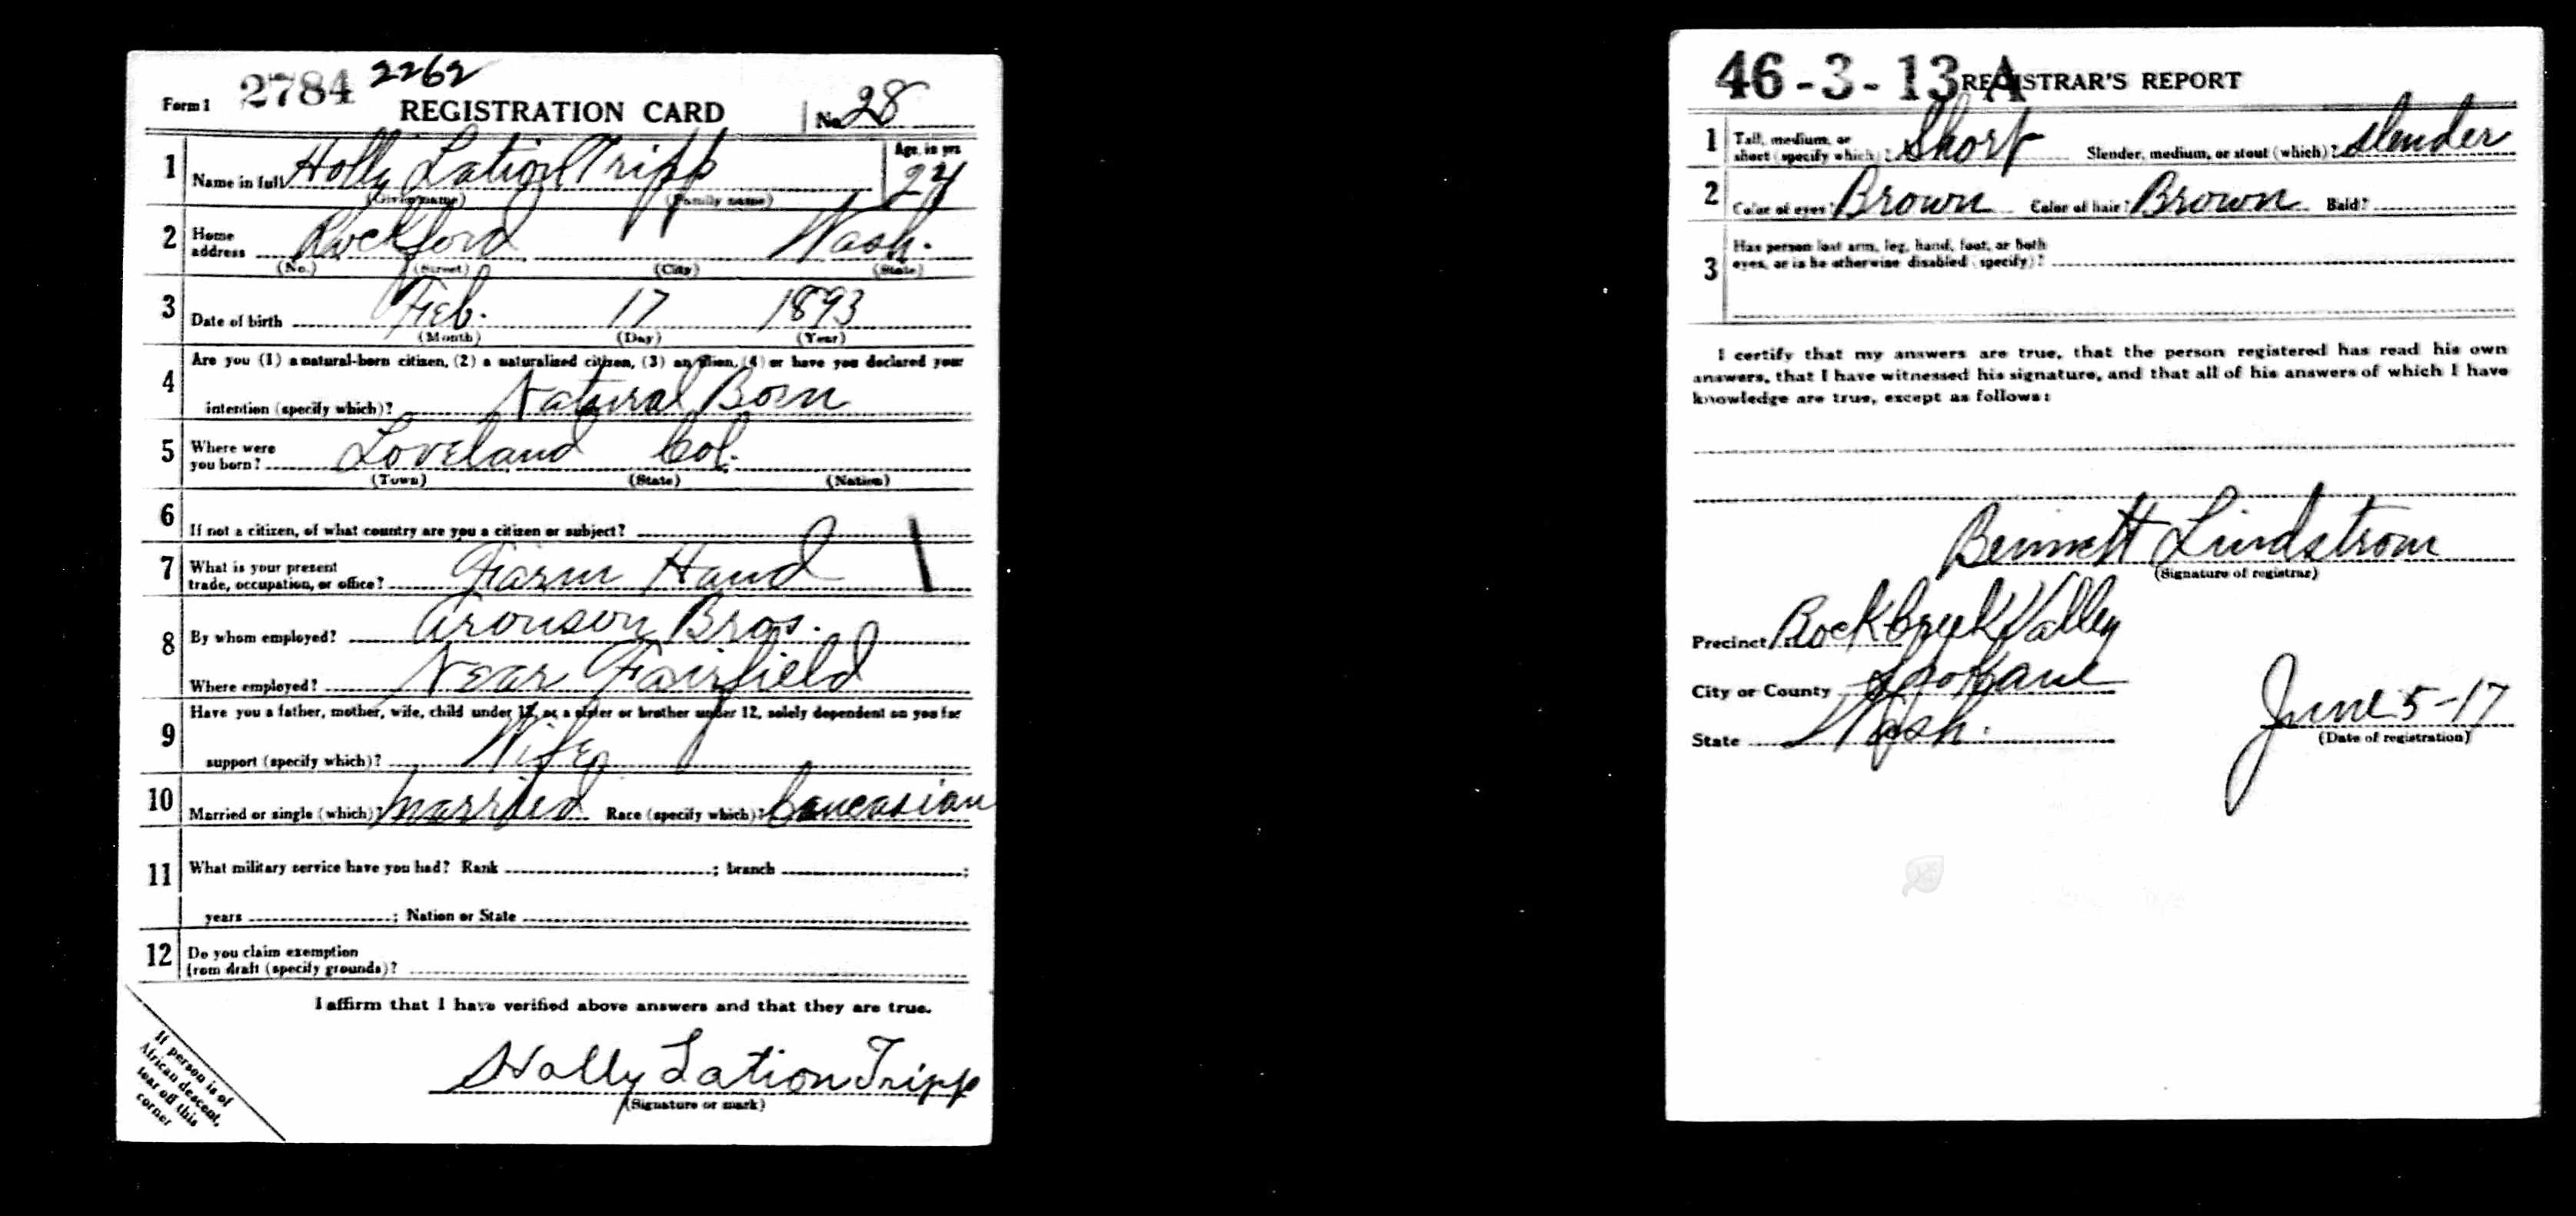 Form 1 2784 2262
REGISTRATION CARD No. 28
1 Name in full Holly Lation Tripp Age, in yrs 24
(Given name) (Family name)
2 Home address Rockford Wash.
(No.) (Street) (City) (State)
3 Date of birth Feb. 17 1893
(Month) (Day) (Year)
4 Are you (1) a natural-born citizen, (2) a naturalized citizen, (3) an alien, (4) or have you declared your
intention (specify which)? Natural Born
5 Where were you born? Loveland Col.
(Town) (State) (Nation)
6 If not a citizen, of what country are you a citizen or subject?
7 What is your present trade, occupation, or office? Farm Hand
8 By whom employed? Aronson Bros.
Where employed? Near Fairfield
9 Have you a father, mother, wife, child under 12, or a sister or brother under 12, solely dependent on you for
support (specify which)? Wife
10 Married or single (which)? married Race (specify which)? Caucasian
11 What military service have you had? Rank ; branch ;
years ; Nation or State
12 Do you claim exemption
from draft (specify grounds)?
I affirm that I have verified above answers and that they are true.
Holly Lation Tripp
(Signature or mark)
If person is of
African descent,
tear off this
corner
46-3-13 A REGISTRAR'S REPORT
1 Tall, medium, or short (specify which)? Short Slender, medium, or stout (which)? Slender
2 Color of eyes? Brown Color of hair? Brown Bald?
3 Has person lost arm, leg, hand, foot, or both
eyes, or is he otherwise disabled (specify)?
I certify that my answers are true, that the person registered has read his own
answers, that I have witnessed his signature, and that all of his answers of which I have
knowledge are true, except as follows:
Bennett Lindstrom
(Signature of registrar)
Precinct Rock Creek Valley
City or County Spokane
State Wash. June 5-17
(Date of registration)